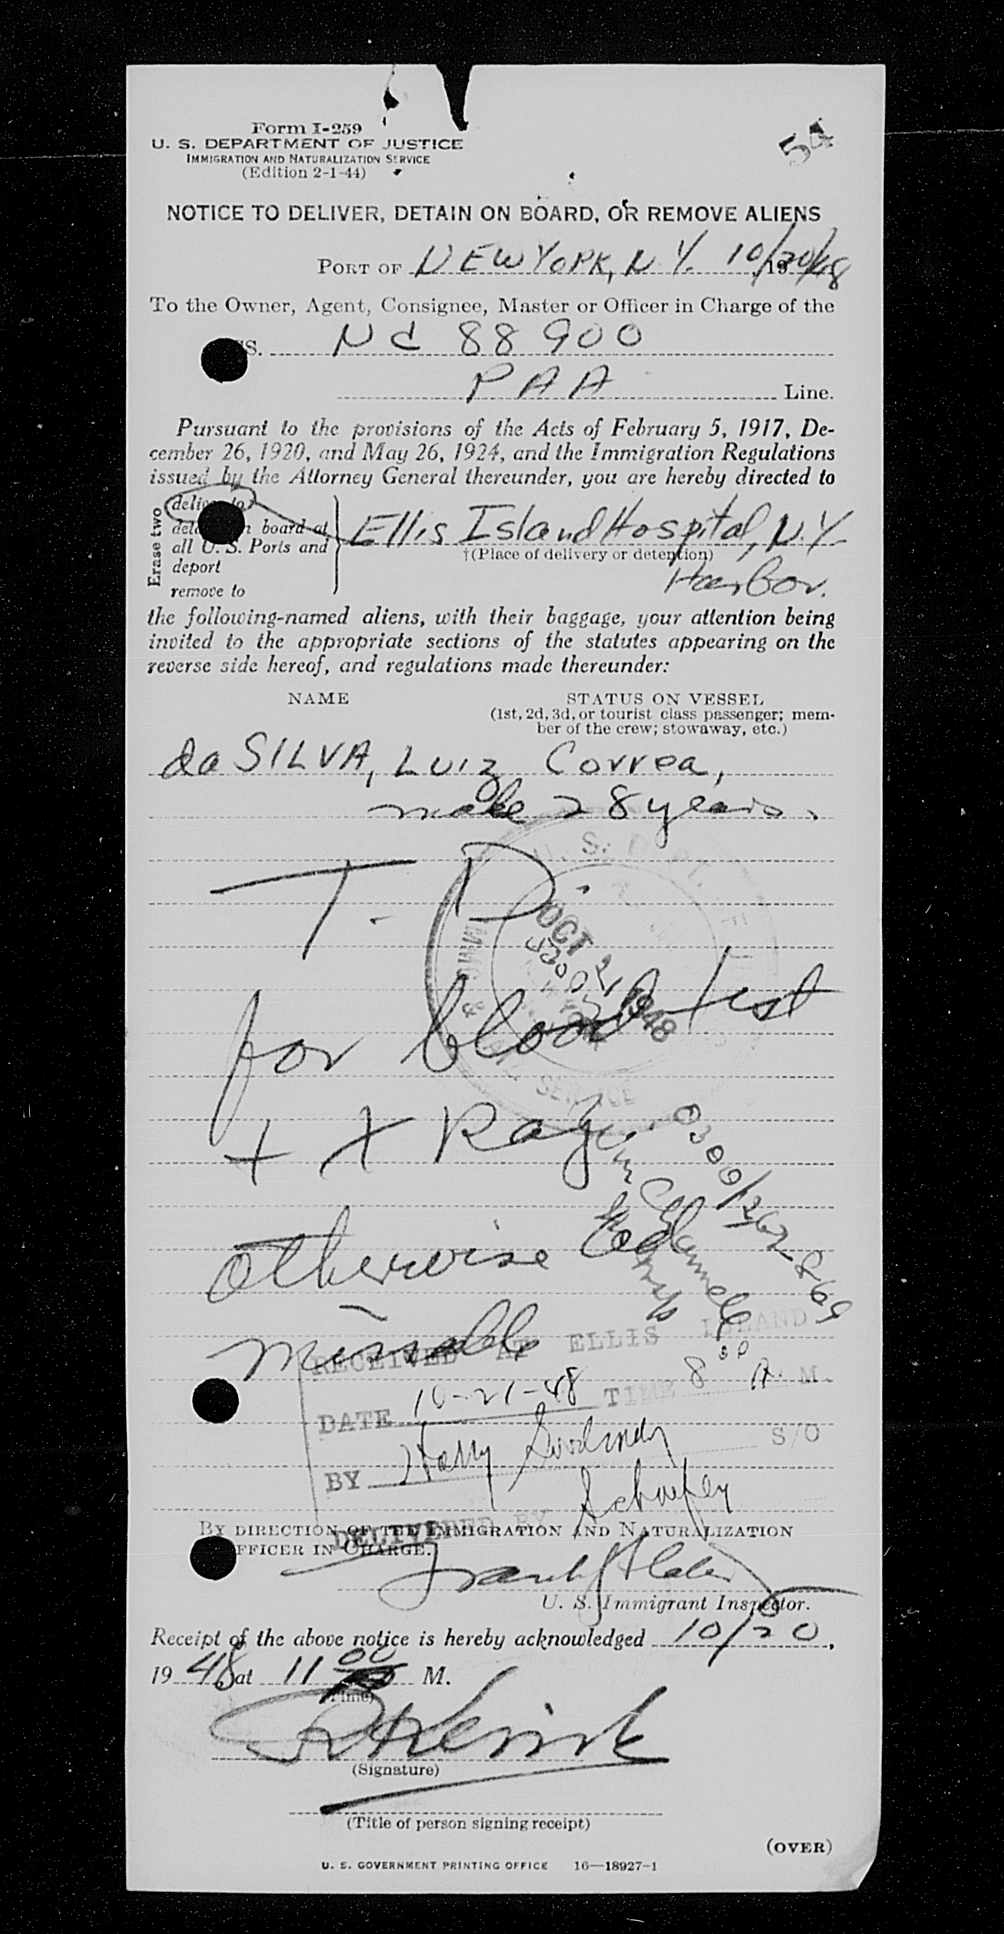 Form I-259
U. S. DEPARTMENT OF JUSTICE
IMMIGRATION AND NATURALIZATION SERVICE
(Edition 2-1-44)
54
NOTICE TO DELIVER, DETAIN ON BOARD, OR REMOVE ALIENS
PORT OF NEW YORK, N.Y. 10/20/1948
To the Owner, Agent, Consignee, Master or Officer in Charge of the
SS. NC 88900
PAA Line.
Pursuant to the provisions of the Acts of February 5, 1917, De-
cember 26, 1920, and May 26, 1924, and the Immigration Regulations
issued by the Attorney General thereunder, you are hereby directed to
Erase two
deliver to
detain on board at
all U. S. Ports and
deport
remove to
Ellis Island Hospital, N.Y.
†(Place of delivery or detention)
Harbor.
the following-named aliens, with their baggage, your attention being
invited to the appropriate sections of the statutes appearing on the
reverse side hereof, and regulations made thereunder:
NAME STATUS ON VESSEL
(1st, 2d, 3d, or tourist class passenger; mem-
ber of the crew; stowaway, etc.)
da SILVA, Luiz Correa,
male 28 years.
T. D.
U. S. DEPT.
IMMIG. &
SERVICE
OCT 21 1948
for blood test
+ X Ray.
0300/
otherwise
RECEIVED AT ELLIS ISLAND
DATE 10-21-48 TIME 8 30 A. M.
BY Harry S/O
DELIVERED BY
BY DIRECTION OF THE IMMIGRATION AND NATURALIZATION
OFFICER IN CHARGE.
Frank
U. S. Immigrant Inspector.
Receipt of the above notice is hereby acknowledged 10/20,
1948 at 11 00 M.
(Time)
(Signature)
(Title of person signing receipt)
(OVER)
U. S. GOVERNMENT PRINTING OFFICE 16—18927-1